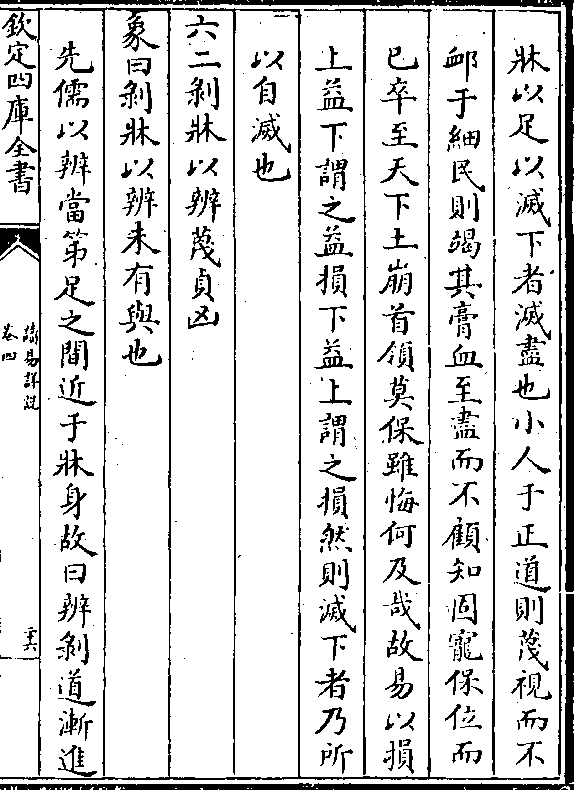 牀以足以滅下者滅盡也小人于正道則蔑視而不
䘏于細民則竭其膏血至盡而不顧知固寵保位而
已卒至天下土崩首領莫保雖悔何及哉故易以損
上益下謂之益損下益上謂之損然則滅下者乃所
以自滅也
六二剥牀以辨蔑貞凶
象曰剥牀以辨未有與也
先儒以辨當第足之間近于牀身故曰辨剥道漸進
欽定四庫全書
讀易詳說
卷四
二十六